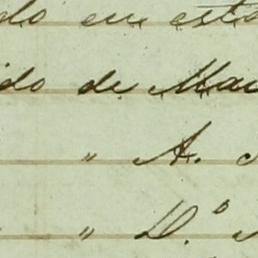 do em esta
ido de Mau
" A.
" D.º